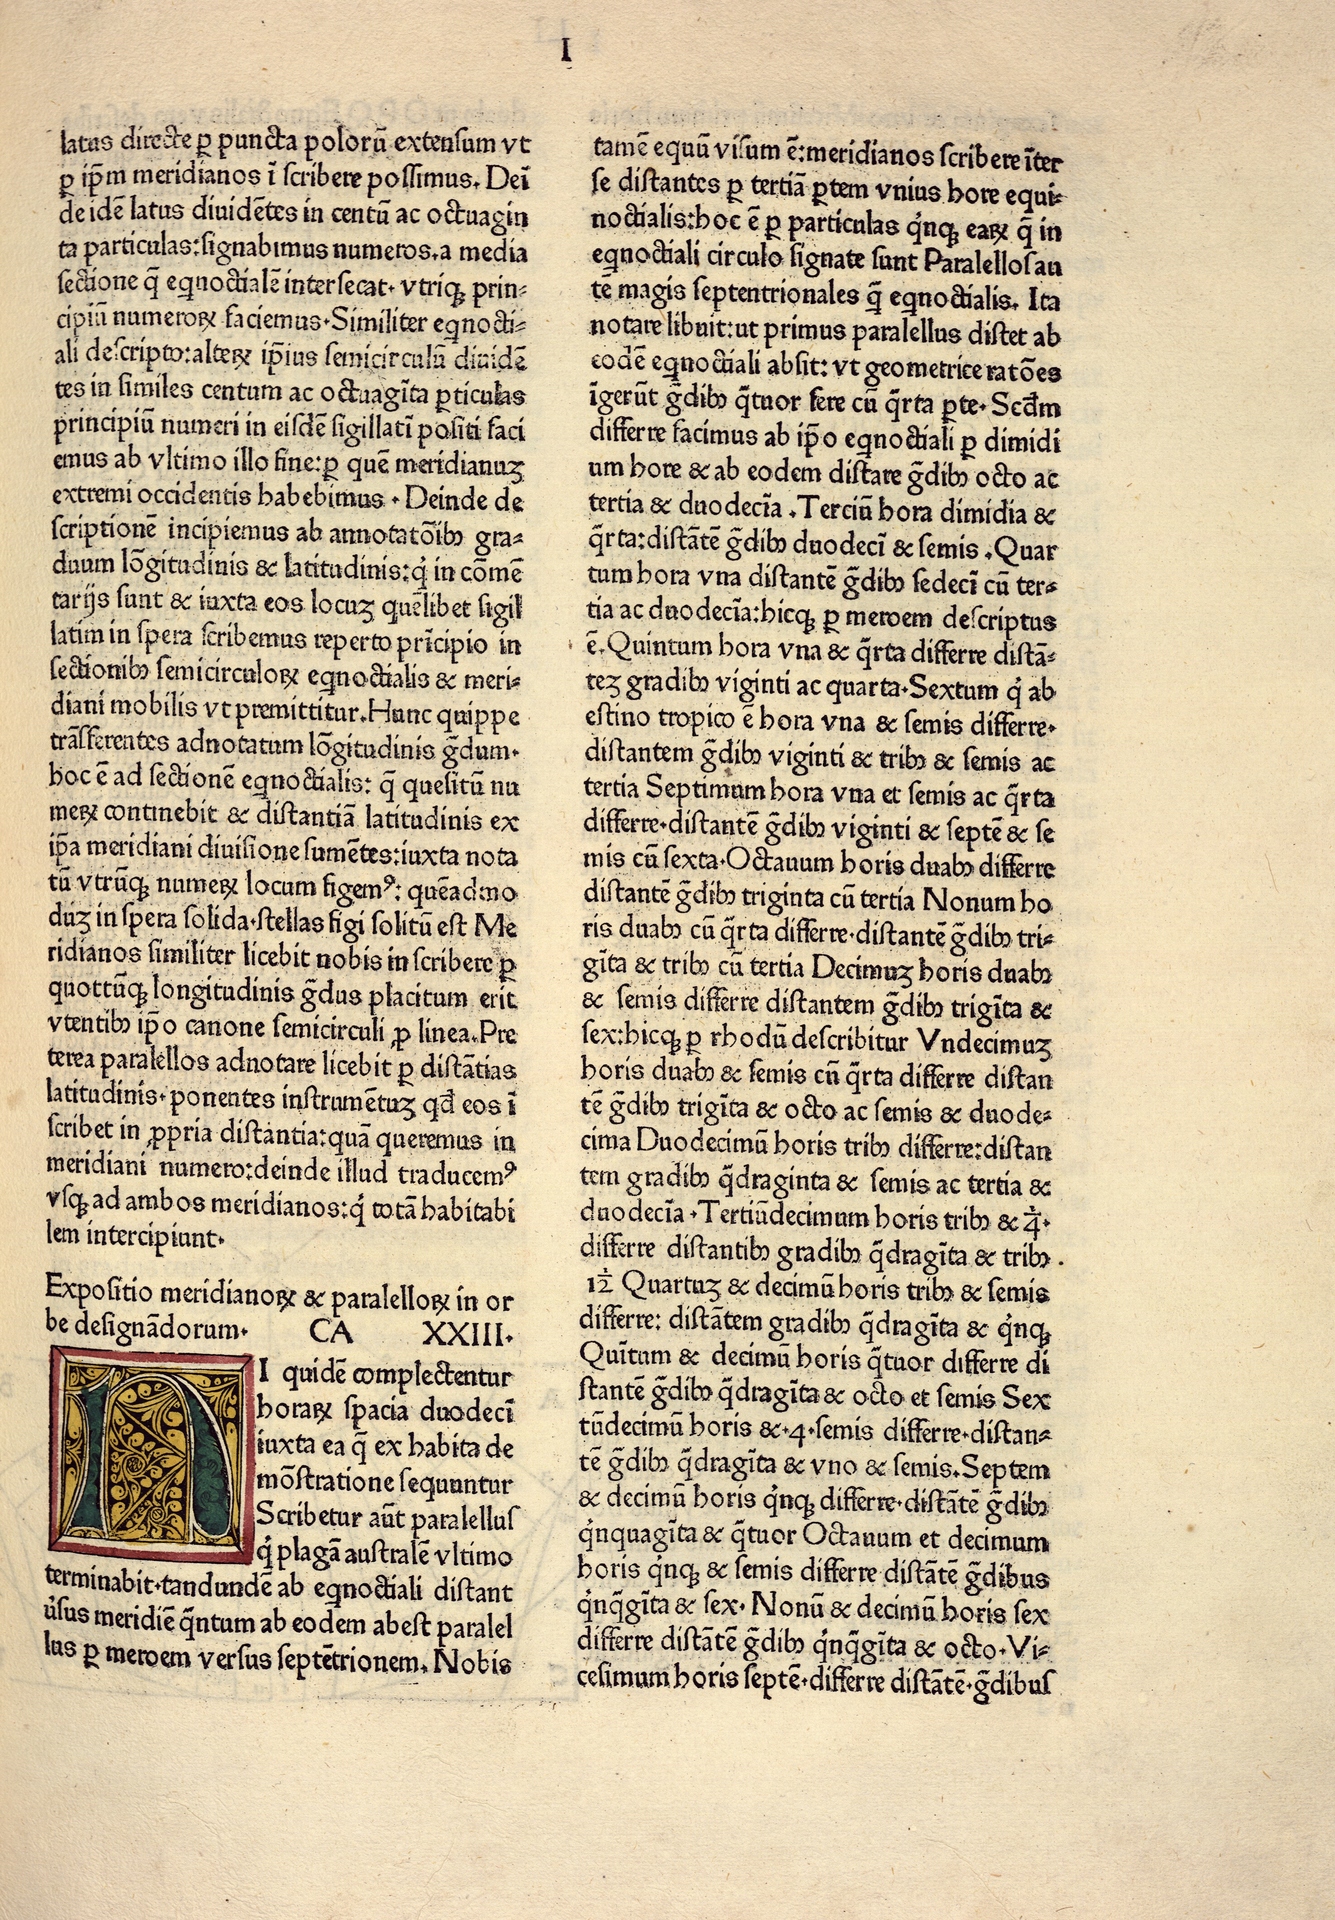 I
latus directe ꝑ puncta polorū extensum vt
ꝑ ip̄m meridianos ī scribere possimus. Deī
de idē latus diuidētes in centū ac octuagin
ta particulas:signabimus numeros.a media
sectione q̄ eqnoctialē intersecat· vtriqꝫ prin-
cipiū numeroꝝ faciemus·Similiter eqnocti-
ali descripto:alteꝝ ip̄ius semicirculū diuidē
tes in similes centum ac octuagīta ꝑticulas
principiū numeri in eisdē sigillatī positi faci
emus ab vltimo illo fine:ꝑ quē meridianuꝫ
extremi occidentis habebimus · Deinde de
scriptionē incipiemus ab annotatōibꝫ gra-
duum lōgitudinis & latitudinis:q̇ in cōmē
tarijs sunt & iuxta eos locuꝫ quēlibet sigil
latim in spera scribemus reperto prīcipio in
sectionibꝫ semicirculoꝝ eqnoctialis & meri-
diani mobilis vt premittitur.Hunc quippe
trāsferentes adnotatum lōgitudinis ḡdum·
hoc ē ad sectionē eqnoctialis: q̄ quesitū nu
meꝝ continebit & distantiā latitudinis ex
ip̄a meridiani diuisione sumētes:iuxta nota
tū vtrūqꝫ numeꝝ locum figemꝰ: quēadmo
duꝫ in spera solida·stellas figi solitū est Me
ridianos similiter licebit nobis in scribere ꝑ
quottūqꝫ longitudinis ḡdus placitum erit
vtentibꝫ ip̄o canone semicirculi ꝓ linea.Pre
terea paralellos adnotare licebit ꝑ distātias
latitudinis· ponentes instrumētuꝫ qd̄ eos ī
scribet in ꝓpria distantia:quā queremus in
meridiani numero:deinde illud traducemꝰ
vsqꝫ ad ambos meridianos:q̇ totā habitabi
lem intercipiunt·
Expositio meridianoꝝ & paralelloꝝ in or
be designādorum· CA XXIII·
NI quidē complectentur
horaꝝ spacia duodecī
iuxta ea q̄ ex habita de
mōstratione sequuntur
Scribetur aūt paralellus
q̇ plagā australē vltimo
terminabit·tandundē ab eqnoctiali distant
ūsus meridiē q̄ntum ab eodem abest paralel
lus ꝑ meroem versus septētrionem. Nobis
tamē equū visum ē:meridianos scribere īter
se distantes ꝑ tertiā ꝑtem vnius hore equi-
noctialis:hoc ē ꝑ particulas q̇nqꝫ eaꝝ q̄ in
eqnoctiali circulo signate sunt Paralellos au
tē magis septentrionales q̄ eqnoctialis. Ita
notare libuit:ut primus paralellus distet ab
eodē eqnoctiali absit: vt geometrice ratōes
īgerūt ḡdibꝫ q̄tuor fere cū q̄rta ꝑte· Scd̄m
differre facimus ab ip̄o eqnoctiali ꝑ dimidi
um hore & ab eodem distare ḡdibꝫ octo ac
tertia & duodecīa .Terciū hora dimidia &
q̄rta:distātē ḡdibꝫ duodecī & semis .Quar
tum hora vna distantē ḡdibꝫ sedecī cū ter-
tia ac duodecīa:hicqꝫ ꝑ meroem descriptus
ē.Quintum hora vna & q̄rta differre distā-
teꝫ gradibꝫ viginti ac quarta·Sextum q̇ ab
estino tropico ē hora vna & semis differre·
distantem ḡdibꝫ viginti & tribꝫ & semis ac
tertia Septimum hora vna et semis ac q̄rta
differre·distantē ḡdibꝫ viginti & septē & se
mis cū sexta·Octauum horis duabꝫ differre
distantē ḡdibꝫ triginta cū tertia Nonum ho
ris duabꝫ cū q̄rta differre·distantē ḡdibꝫ tri-
gīta & tribꝫ cū tertia Decimuꝫ horis duabꝫ
& semis differre distantem ḡdibꝫ trigīta &
sex:hicqꝫ ꝑ rhodū describitur Vndecimuꝫ
horis duabꝫ & semis cū q̄rta differre distan
tē ḡdibꝫ trigīta & octo ac semis & duode-
cima Duodecimū horis tribꝫ differre:distan
tem gradibꝫ q̄draginta & semis ac tertia &
duodecīa ·Tertiūdecimum horis tribꝫ & 4̇·
differre distantibꝫ gradibꝫ q̄dragīta & tribꝫ.
12̇ Quartuꝫ & decimū horis tribꝫ & semis
differre: distātem gradibꝫ q̄dragīta & q̇nqꝫ
Quītum & decimū horis q̄tuor differre di
stantē ḡdibꝫ q̄dragīta & octo et semis Sex
tūdecimū horis &·4·semis differre·distan-
tē ḡdibꝫ q̄dragīta & vno & semis.Septem
& decimū horis q̇nqꝫ differre·distātē ḡdibꝫ
q̇nquagīta & q̄tuor Octauum et decimum
horis q̇nqꝫ & semis differre distātē ḡdibus
q̇nq̄gīta & sex· Nonū & decimū horis sex
differre distātē ḡdibꝫ q̇nq̄gīta & octo·Vi-
cesimum horis septē·differre distātē·ḡdibus